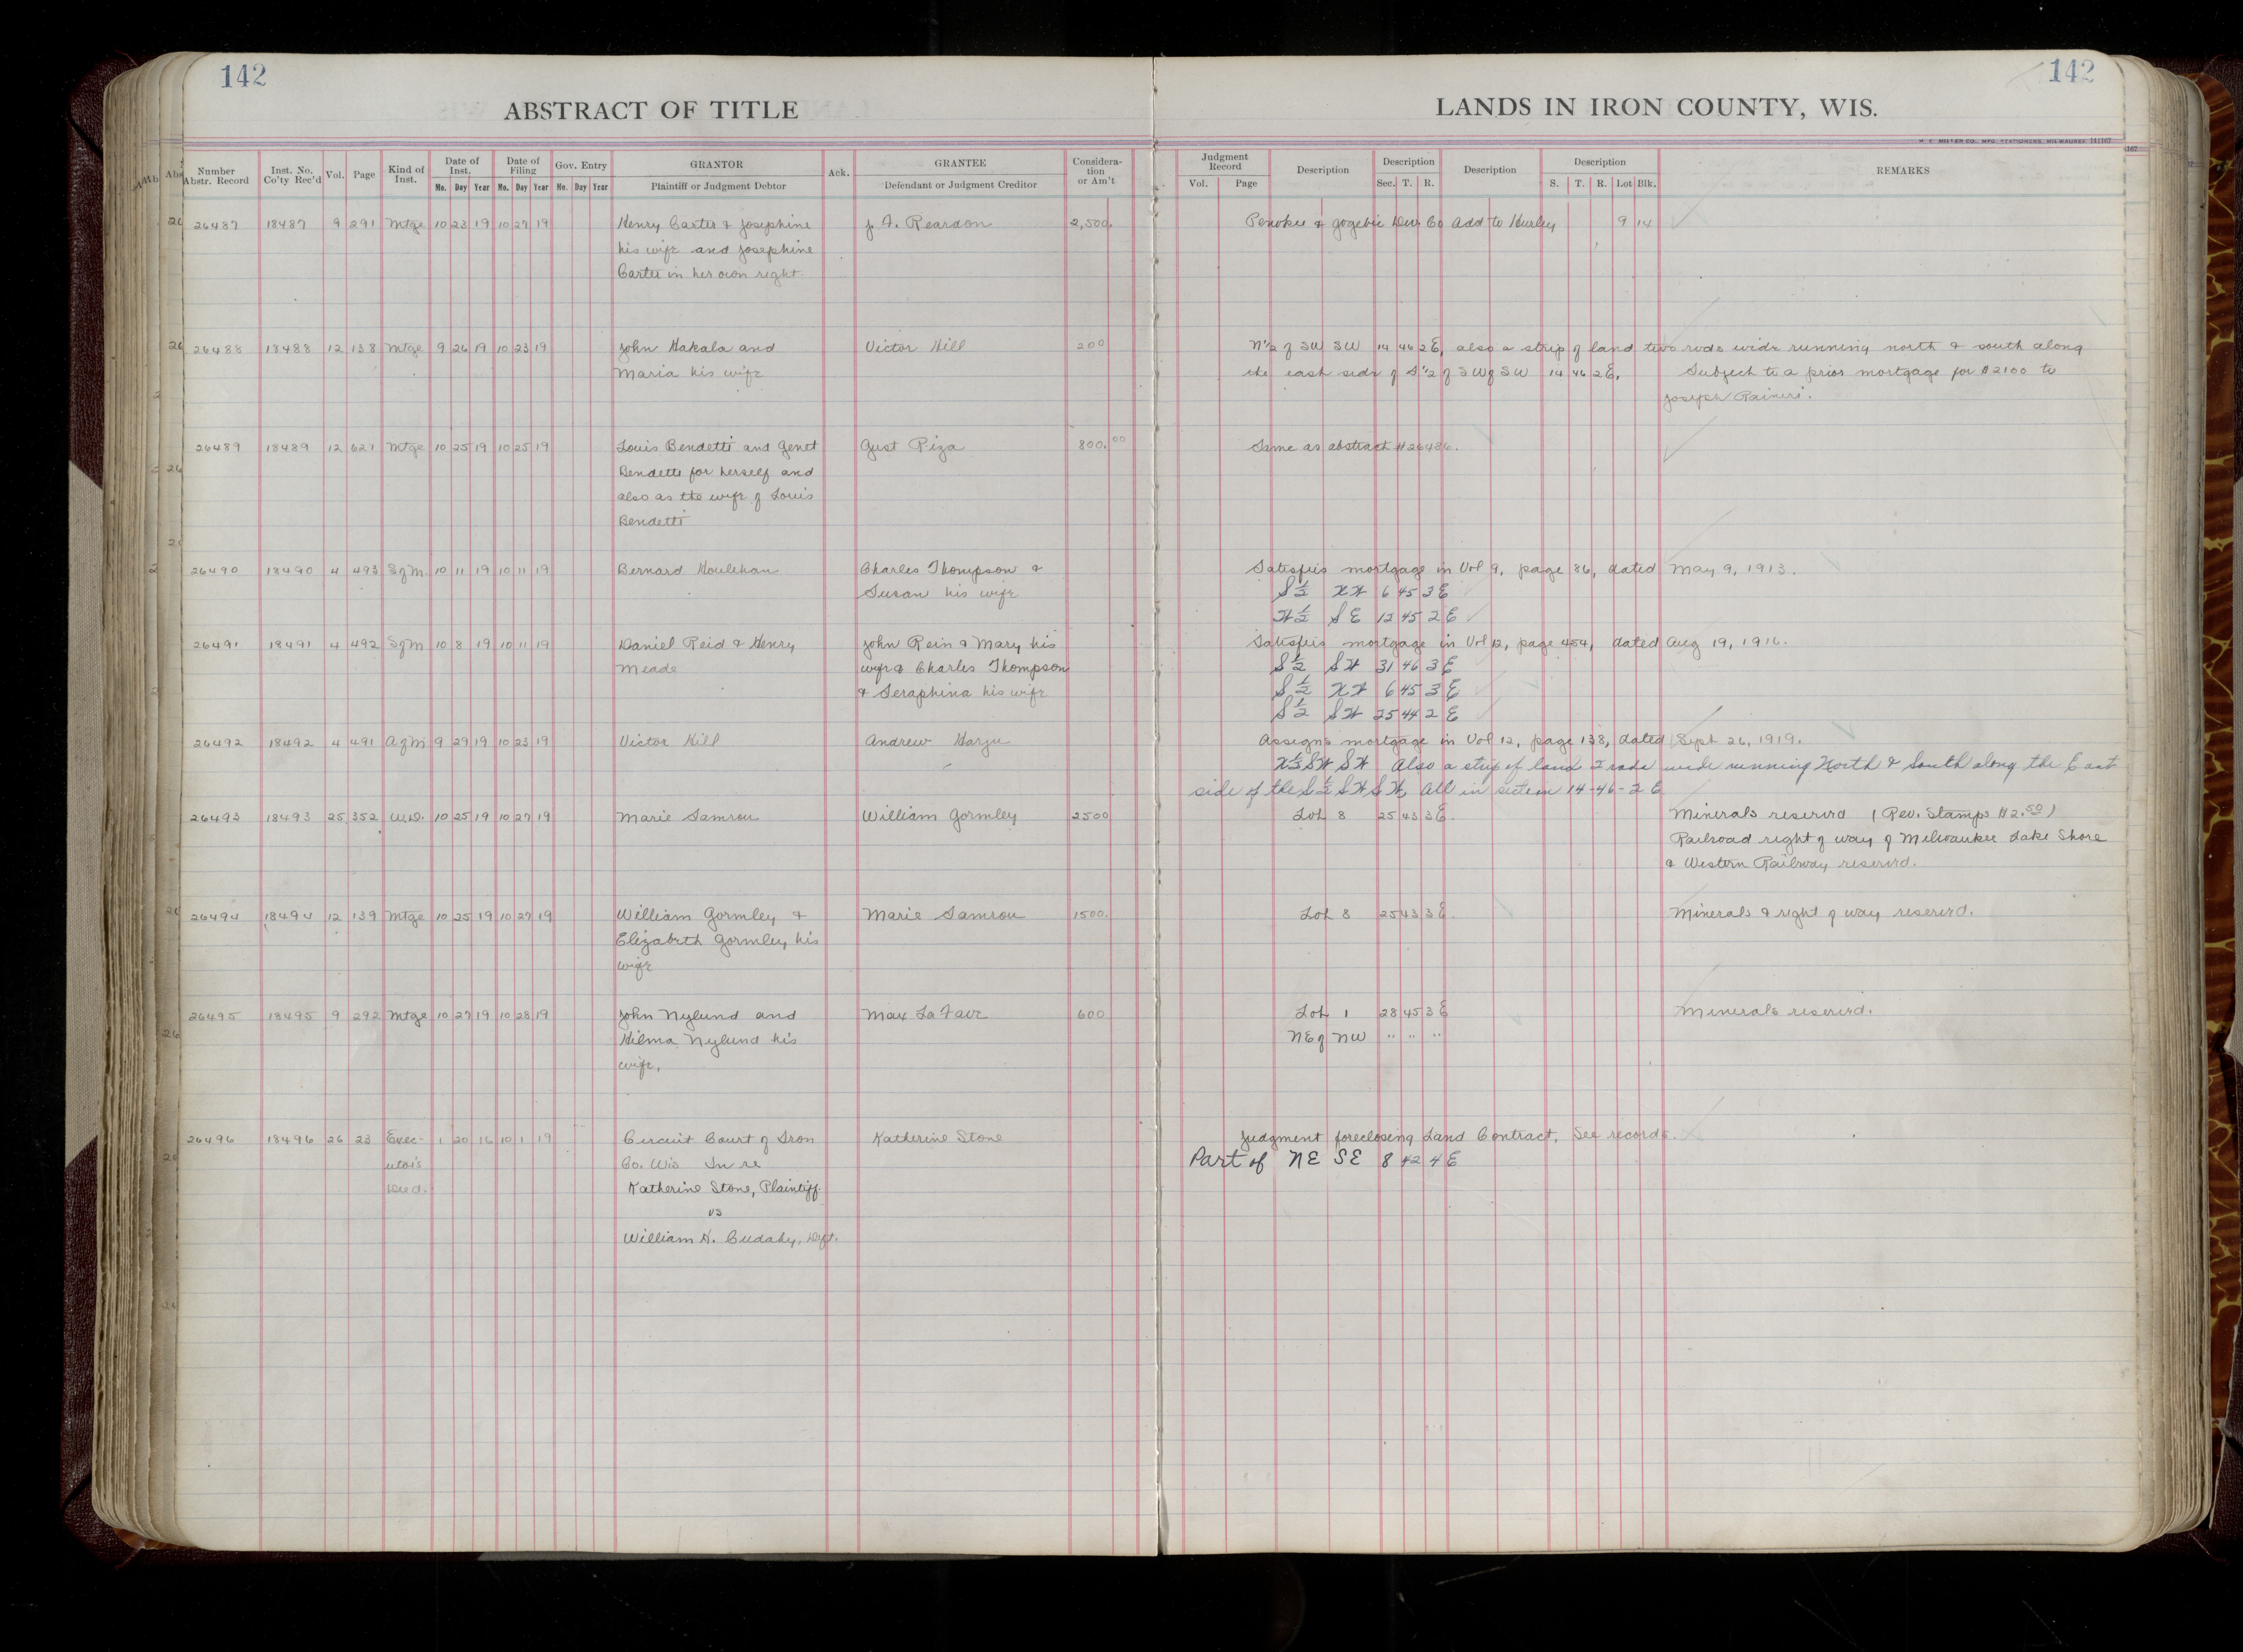 142
142
ABSTRACT OF TITLE
LANDS IN IRON COUNTY, WIS.
M. E. MILLER CO., MFG. STATIONERS, MILWAUKEE 141167
Number Abstr. Record Inst. No. Co'ty Rec'd Vol. Page Kind of Inst. Date of Inst. Mo. Day Year Date of Filing Mo. Day Year Gov. Entry No. Day Year GRANTOR Plaintiff or Judgment Debtor Ack. GRANTEE Defendant or Judgment Creditor Considera-tion or Am't
Judgment Record Vol. Page Description Description Sec. T. R. Description Description S. T. R. Lot Blk. REMARKS
26487 18487 9 291 Mtge 10 23 19 10 27 19 Henry Carter & Josephine J. F. Reardon 2,500. Penokee & Gogebic Dev Co Add to Hurley 9 14
his wife and Josephine
Carter in her own right
26488 18488 12 138 Mtge 9 26 19 10 23 19 John Hakala and Victor Hill 200 N 1/2 of SW SW 14 46 2 E, also a strip of land two rods wide running north & south along
Maria his wife the east side of S 1/2 of SW of SW 14 46 2 E. Subject to a prior mortgage for $2100 to
Joseph Raineri.
26489 18489 12 621 Mtge 10 25 19 10 25 19 Louis Bendetti and Genet Gust Piza 800.00 Same as abstract #26486.
Bendetti for herself and
also as the wife of Louis
Bendetti
26490 18490 4 493 S of M. 10 11 19 10 11 19 Bernard Houlehan Charles Thompson & Satisfies mortgage in Vol 9, page 86, dated May 9, 1913.
Susan his wife S 1/2 NW 6 45 3 E
W 1/2 SE 12 45 2 E
26491 18491 4 492 S of M 10 8 19 10 11 19 Daniel Reid & Henry John Rein & Mary his Satisfies mortgage in Vol 12, page 454, dated Aug 19, 1916.
Meade wife & Charles Thompson S 1/2 SW 31 46 3 E
& Seraphina his wife S 1/2 NW 6 45 3 E
S 1/2 SW 25 44 2 E
26492 18492 4 491 A of M 9 29 19 10 23 19 Victor Hill Andrew Harju Assigns mortgage in Vol 12, page 138, dated Sept 26, 1919.
N 1/2 SW SW Also a strip of land 2 rods wide running North & South along the East
side of the S 1/2 SW SW, All in section 14-46-2 E
26493 18493 25 352 W.D. 10 25 19 10 27 19 Marie Samrou William Gormley 2500 Lot 8 25 43 3 E. Minerals reserved (Rev. Stamps $2.50)
Railroad right of way of Milwaukee Lake Shore
& Western Railway reserved.
26494 18494 12 139 Mtge 10 25 19 10 27 19 William Gormley & Marie Samrou 1500. Lot 8 25 43 3 E. Minerals & right of way reserved.
Elizabeth Gormley his
wife
26495 18495 9 292 Mtge 10 27 19 10 28 19 John Nylund and Max La Fave 600 Lot 1 28 45 3 E Minerals reserved.
Hilma Nylund his NE of NW " " "
wife.
26496 18496 26 23 Exec- 1 20 16 10 1 19 Circuit Court of Iron Katherine Stone Judgment foreclosing Land Contract, See records.
utor's Co. Wis In re Part of NE SE 8 42 4 E
Deed. Katherine Stone, Plaintiff.
vs
William H. Cudahy, Deft.